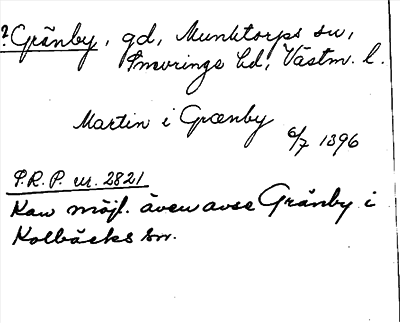 ? Gränby, gd, Munktorps sn,
Snevringe hd, Västm. l.
Martin i Grænby
6/7 1396
P.R.P. nr. 2821
Kan möjl. även avse Gränby i
Kolbäcks sn.